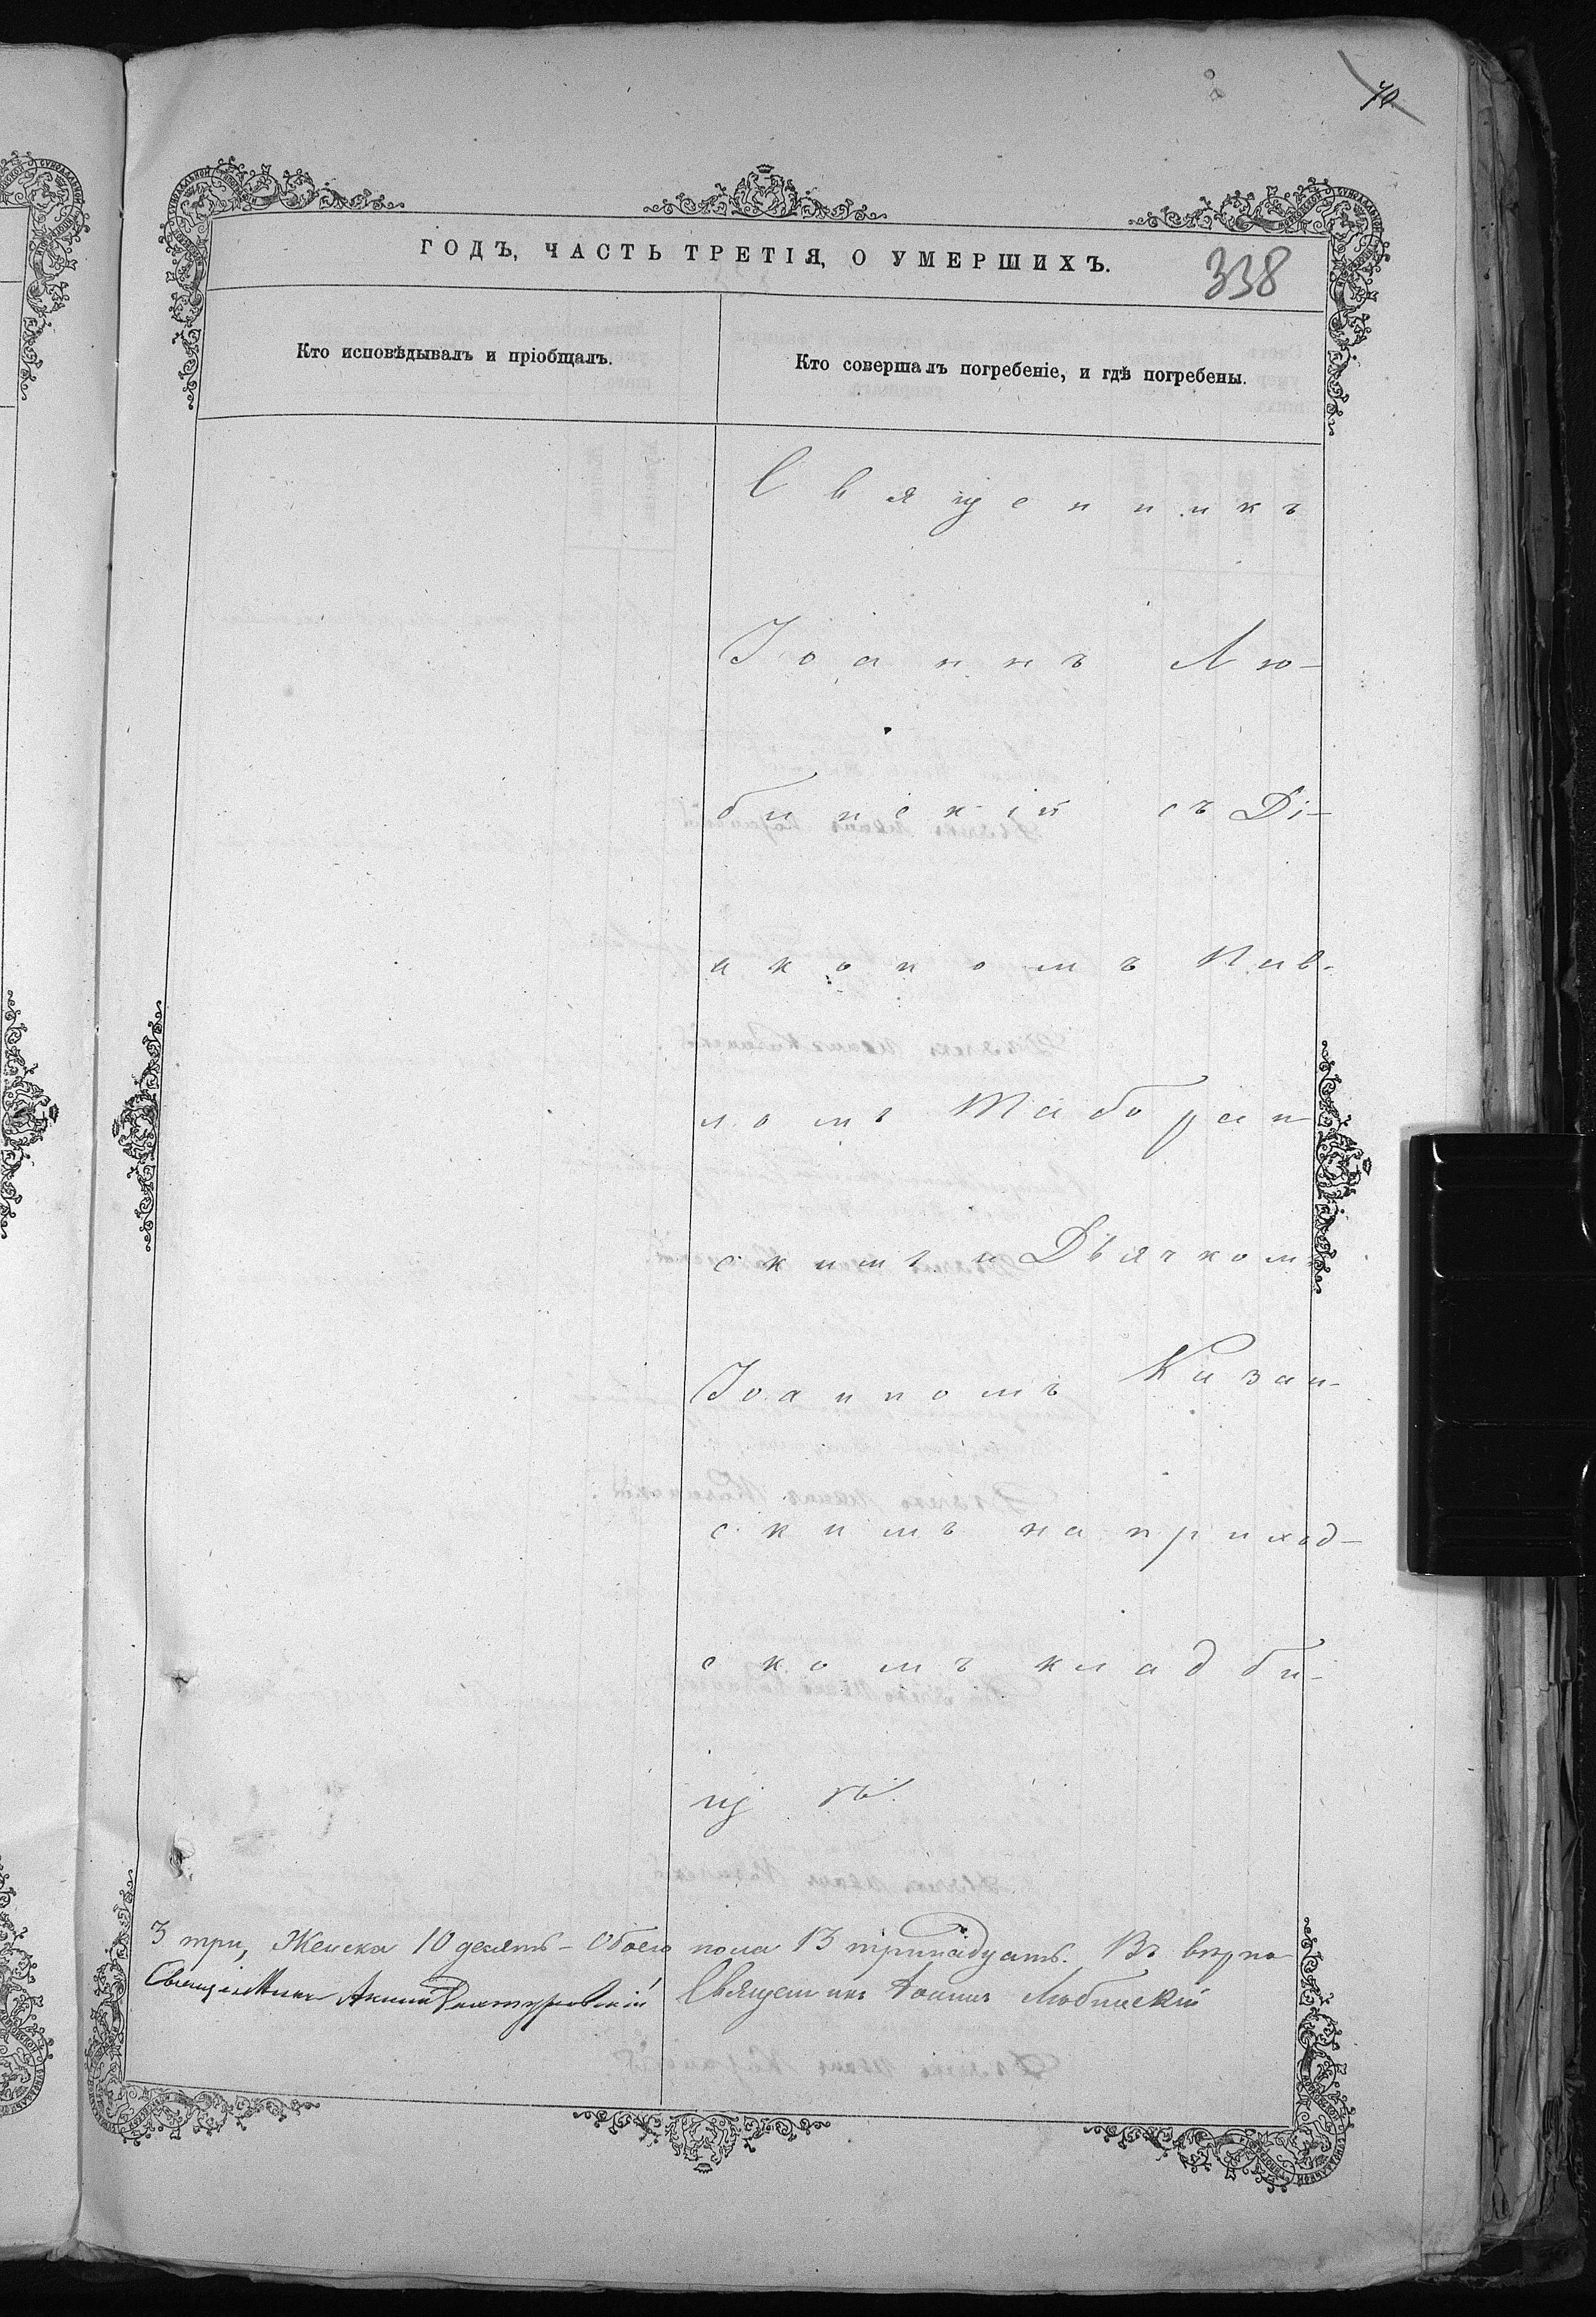 70
ГОДЪ, ЧАСТЬ ТРЕТІЯ, О УМЕРШИХЪ.
338
Кто исповѣдывалъ и пріобщалъ.
Кто совершалъ погребеніе, и гдѣ погребены.
Священникъ
Іоаннъ Лю-
бинскій съ Ді-
акономъ Пав-
ломъ Таборин
скимъ и Дьячкомъ
Іоанномъ Казан-
скимъ на приход-
скомъ кладби-
щѣ.
3 три, Женска 10 десять - Обоего пола 13 тринадцать. Вѣ вѣрно
Священникъ Священникъ Іоаннъ Любинскій